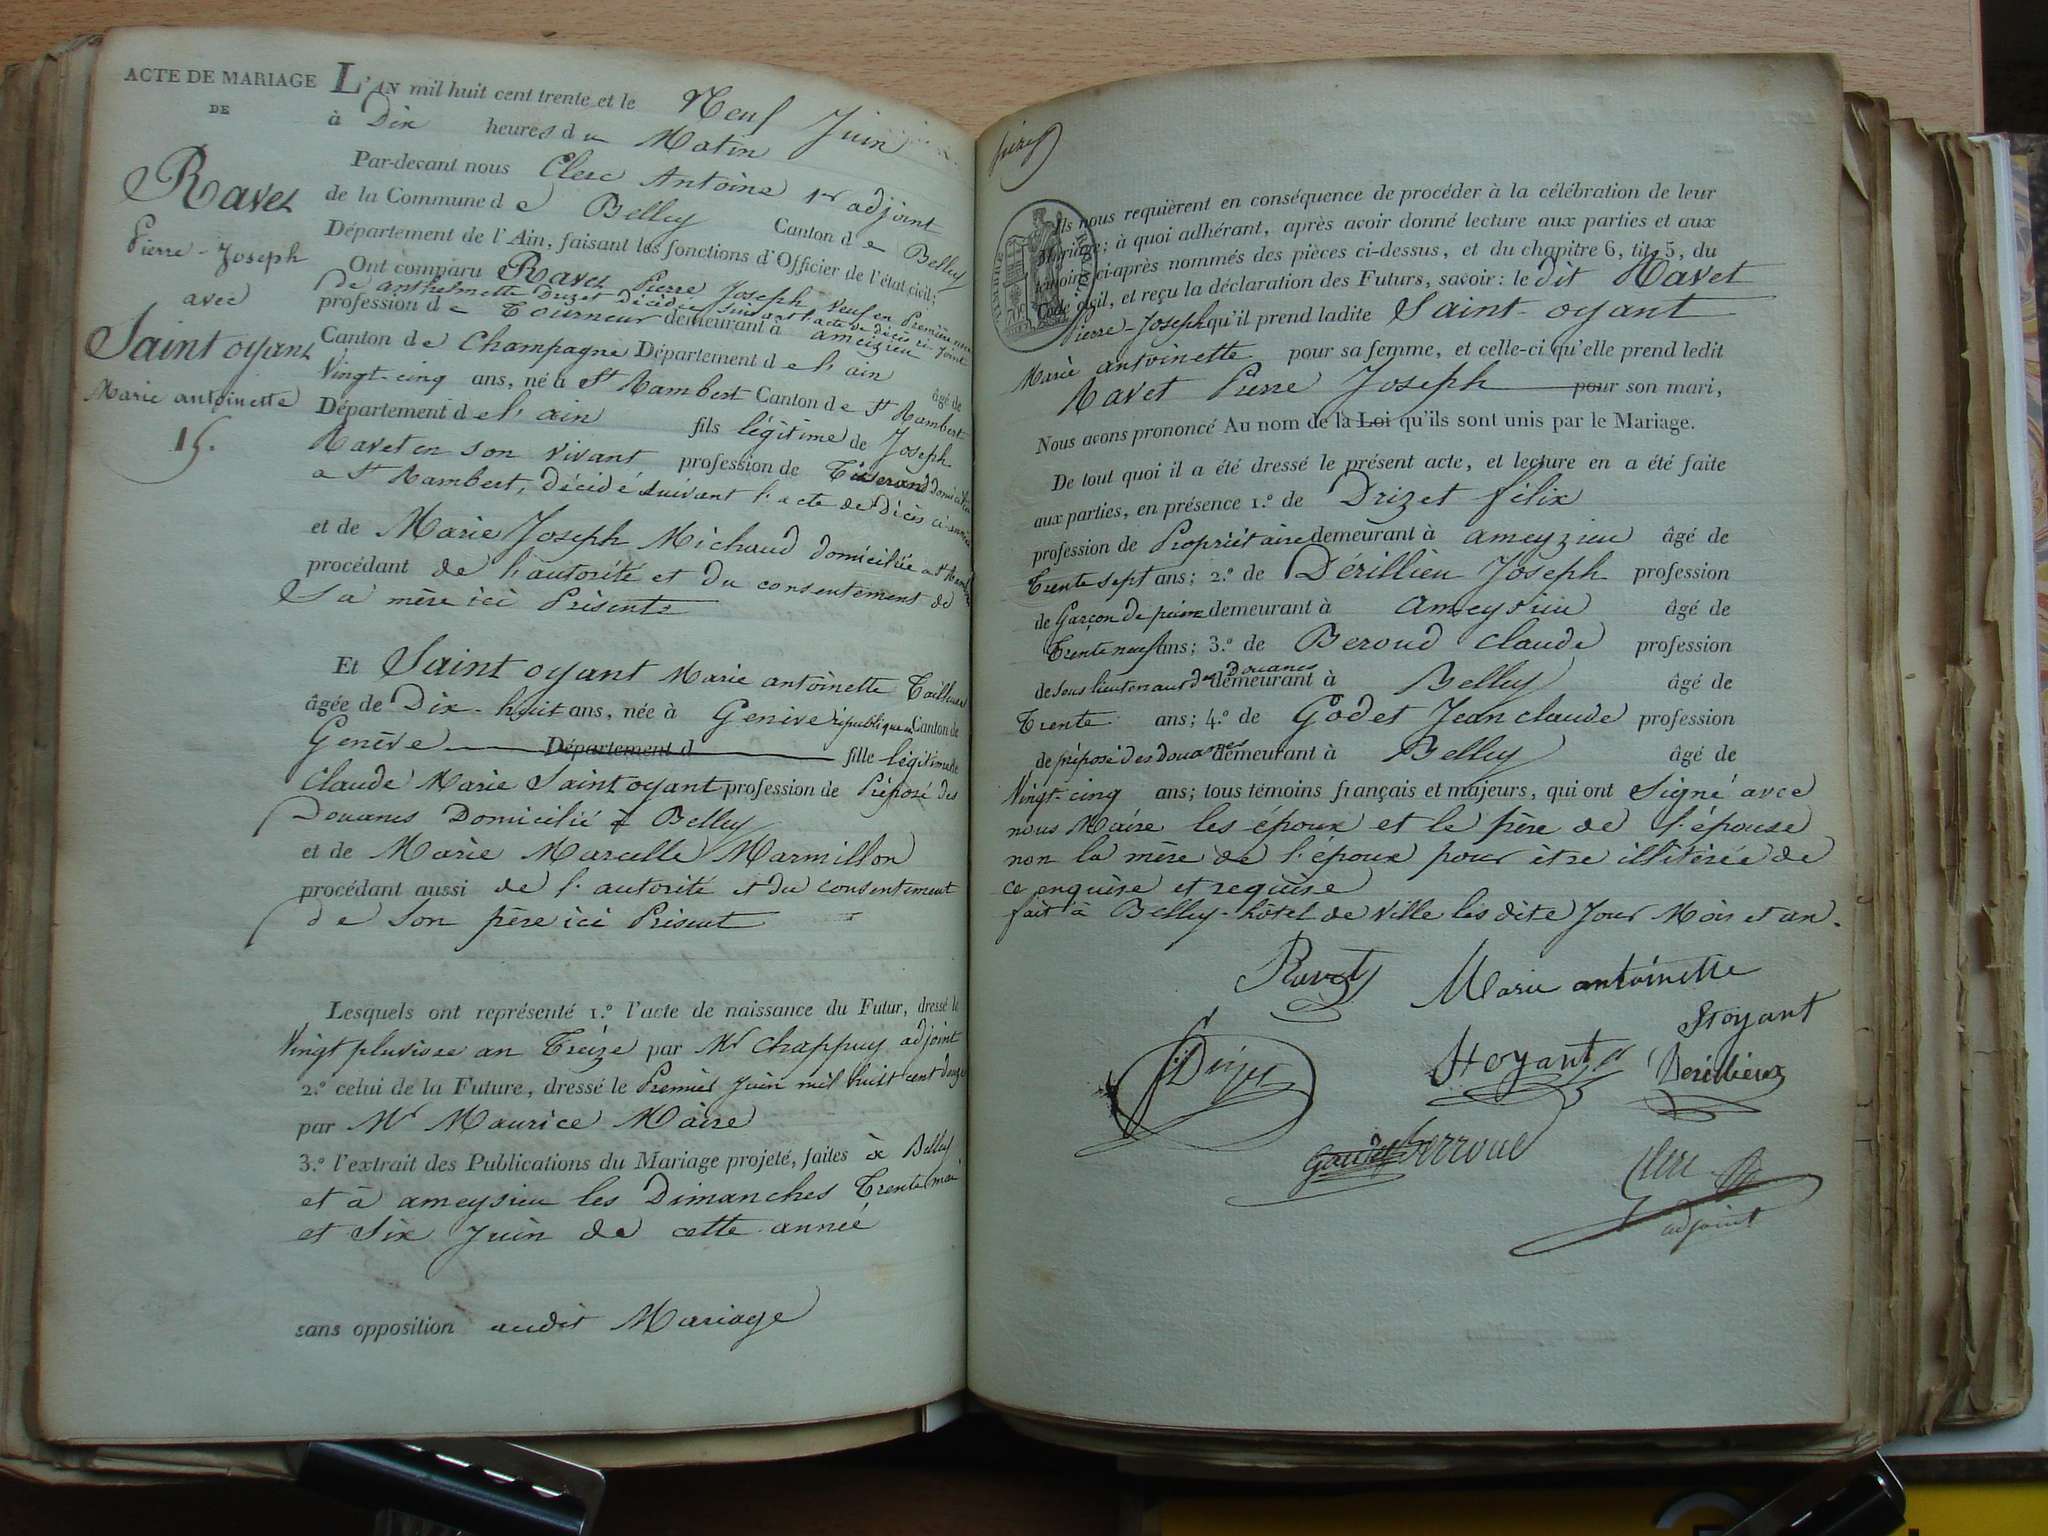 ACTE DE MARIAGE
DE
Ravet
Pierre-Joseph
avec
Saint oyant
Marie antoinette
15.
L'AN mil huit cent trente et le Neuf Juin
à Dix heures du Matin
Par-devant nous Clerc Antoine 1er adjoint
de la Commune de Belley Canton de Belley
Département de l'Ain, faisant les fonctions d'Officier de l'état civil;
Ont comparu Ravet Pierre Joseph veuf en Première
de anthelmette Drizet décédée suivant l'acte de décès ci-joint
profession de Tourneur demeurant à ameizieu
Canton de Champagne Département de l'ain âgé de
Vingt-cinq ans, né à St Rambert Canton de St Rambert
Département de l'ain fils légitime de Joseph
Ravet en son vivant profession de Tisserand domicilié
a St Rambert, décédé suivant l'acte de décès ci-annexé
et de Marie Joseph Michaud domiciliée a St Rambert
procédant de l'autorité et du consentement de
Sa mère ici Présente
Et Saint oyant Marie antoinette Tailleuse
âgée de Dix-huit ans, née à Genève république Canton de
Genève Département d fille légitime de
Claude Marie Saint oyant profession de Préposé des
Douanes Domicilié à Belley
et de Marie Marcelle Marmillon
procédant aussi de l'autorité et du consentement
de Son père ici Présent
Lesquels ont représenté 1.º l'acte de naissance du Futur, dressé le
Vingt pluviose an Treize par Mr Chappuy adjoint
2.º celui de la Future, dressé le Premier Juin mil huit cent douze
par Mr Maurice Maire
3.º l'extrait des Publications du Mariage projeté, faites à Belley
et à ameysieu les Dimanches Trente mai
et Six Juin de cette année
sans opposition audit Mariage
Ils nous requièrent en conséquence de procéder à la célébration de leur
Mariage; à quoi adhérant, après avoir donné lecture aux parties et aux
témoins ci-après nommés des pièces ci-dessus, et du chapitre 6, tit. 5, du
Code civil, et reçu la déclaration des Futurs, savoir: le dit Ravet
Pierre-Joseph qu'il prend ladite Saint-oyant
Marie antoinette pour sa femme, et celle-ci qu'elle prend ledit
Ravet Pierre Joseph pour son mari,
Nous avons prononcé Au nom de la Loi qu'ils sont unis par le Mariage.
De tout quoi il a été dressé le présent acte, et lecture en a été faite
aux parties, en présence 1.º de Drizet félix
profession de Propriétaire demeurant à ameyzieu âgé de
Trente sept ans; 2.º de Dérillieu Joseph profession
de Garçon de peine demeurant à ameysieu âgé de
Trente neuf ans; 3.º de Beroud Claude profession
de sous lieutenant des Douanes demeurant à Belley âgé de
Trente ans; 4.º de Godet Jean claude profession
de préposé des douanes demeurant à Belley âgé de
Vingt-cinq ans; tous témoins français et majeurs, qui ont Signé avec
nous Maire les époux et le père de l'épouse
non la mère de l'époux pour être illitérée de
ce enquise et requise
fait à Belley-hôtel de ville les dits Jour Mois et an.
Ravet Marie antoinette
Stoyant
Drizet Stoyant Derillieux
Gaudet Berroud Clerc
adjoint